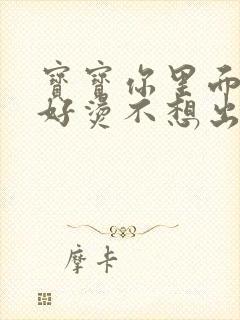 寶寶你里面
好燙不想出
摩卡